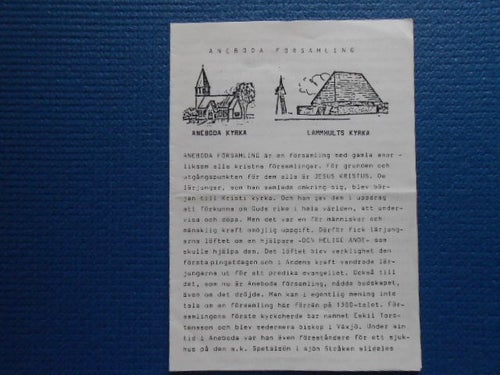 ANEBODA FÖRSAMLING
ANEBODA KYRKA
LAMMHULTS KYRKA
ANEBODA FÖRSAMLING är en församling med gamla anor -
liksom alla kristna församlingar. För grunden och
utgångspunkten för dem alla är JESUS KRISTUS. De
lärjungar, som han samlade omkring sig, blev bör-
jan till Kristi kyrka. Och han gav dem i uppdrag
att förkunna om Guds rike i hela världen, att under-
visa och döpa. Men det var en för människor och
mänsklig kraft omöjlig uppgift. Därför fick lärjung-
arna löftet om en hjälpare -DEN HELIGE ANDE- som
skulle hjälpa dem. Det löftet blev verklighet den
första pingstdagen och i Andens kraft vandrade lär-
jungarna ut för att predika evangeliet. Också till
det, som nu är Aneboda församling, nådde budskapet,
även om det dröjde. Men kan i egentlig mening inte
tala om en församling här förrän på 1300-talet. För-
samlingens förste kyrkoherde bar namnet Eskil Tors-
tensson och blev sedermera biskop i Växjö. Under sin
tid i Aneboda var han även föreståndare för ett sjuk-
hus på den s.k. Spetalsön i sjön Stråken alldeles